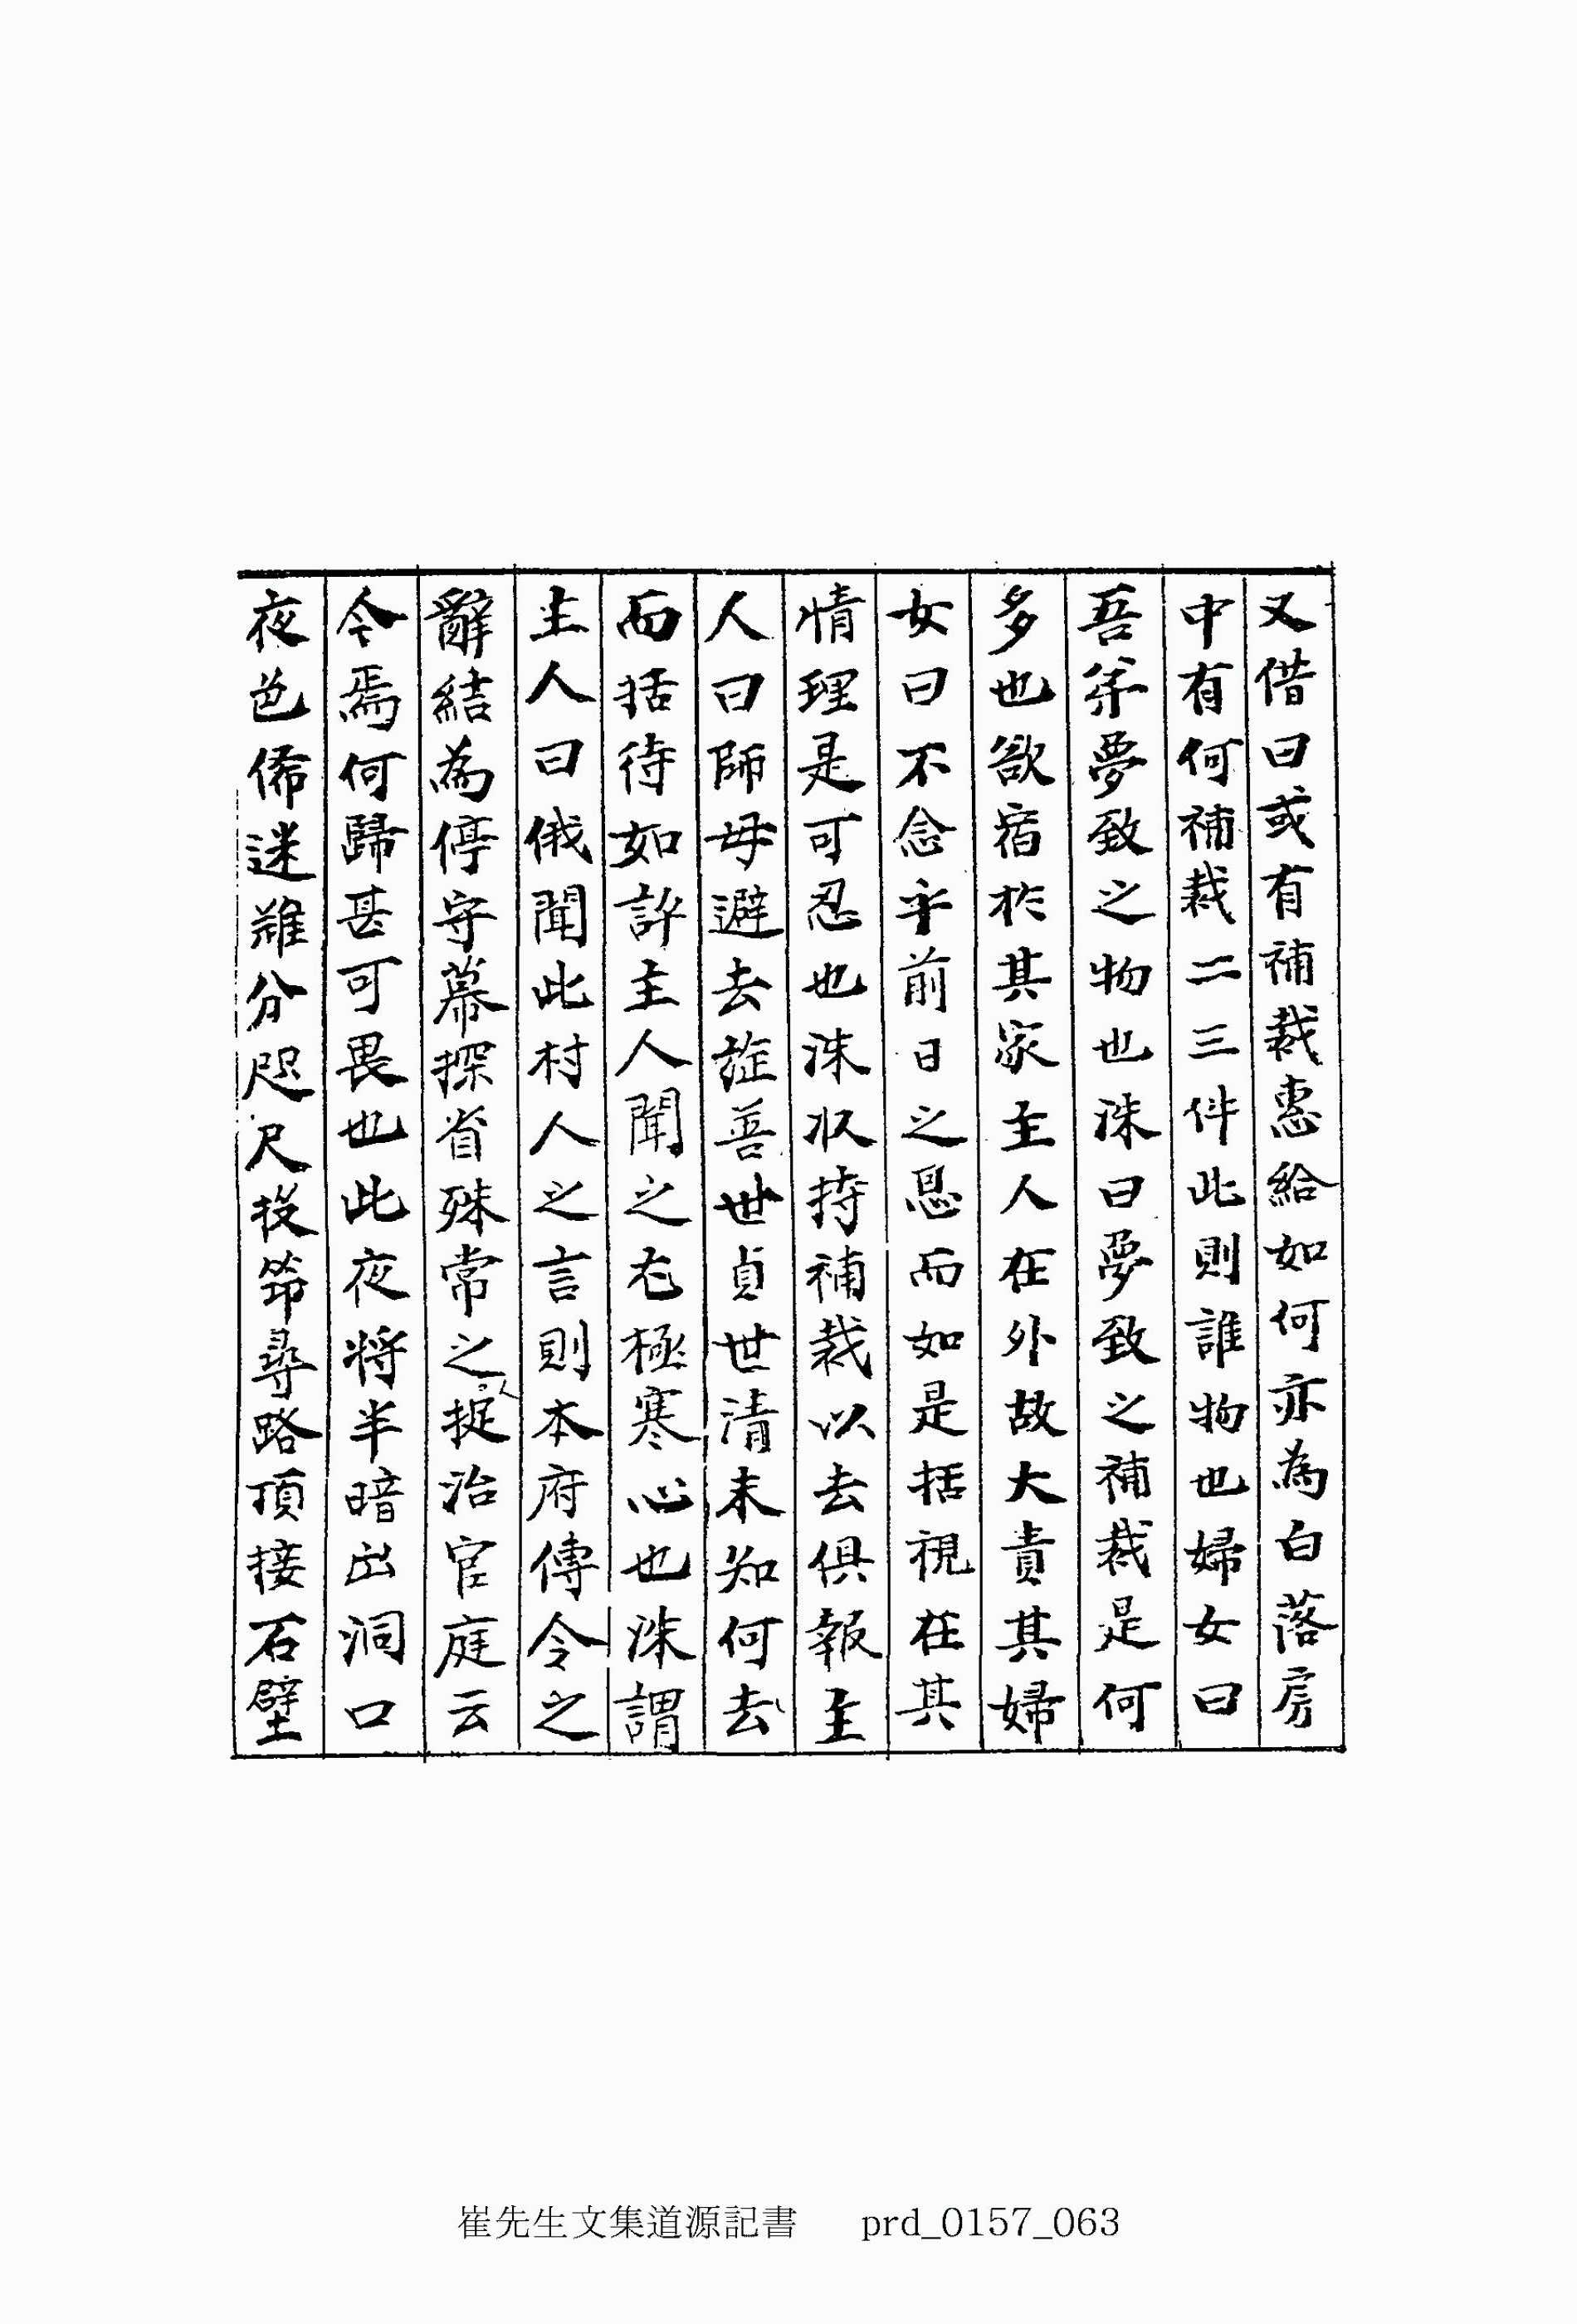 又借曰或有補裁惠給如何亦為白落房
中有何補裁二三件此則誰物也婦女曰
吾弟夢致之物也洙曰夢致之補裁是何
多也欲宿於其家主人在外故大責其婦
女曰不念乎前日之恩而如是括視在其
情理是可忍也洙収持補裁以去俱報主
人曰師母避去旌善世貞世清未知何去
而括待如許主人聞之尤極寒心也洙謂
主人曰俄聞此村人之言則本府傳令之
辭結為停守幕探省殊常之人捉治官庭云
今焉何歸甚可畏也此夜將半暗出洞口
夜色俙迷難分咫尺投笻尋路頂接石壁
崔先生文集道源記書 prd_0157_063